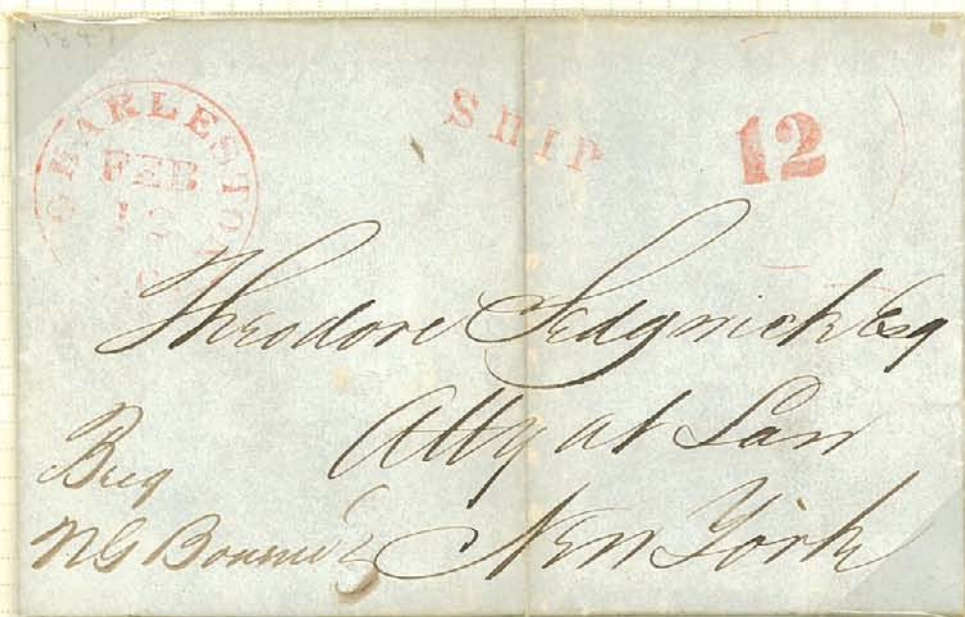 1847
CHARLESTON
FEB
SHIP
12
Theodore Sedgwick Esq
Atty at Law
New York
Brig
NG